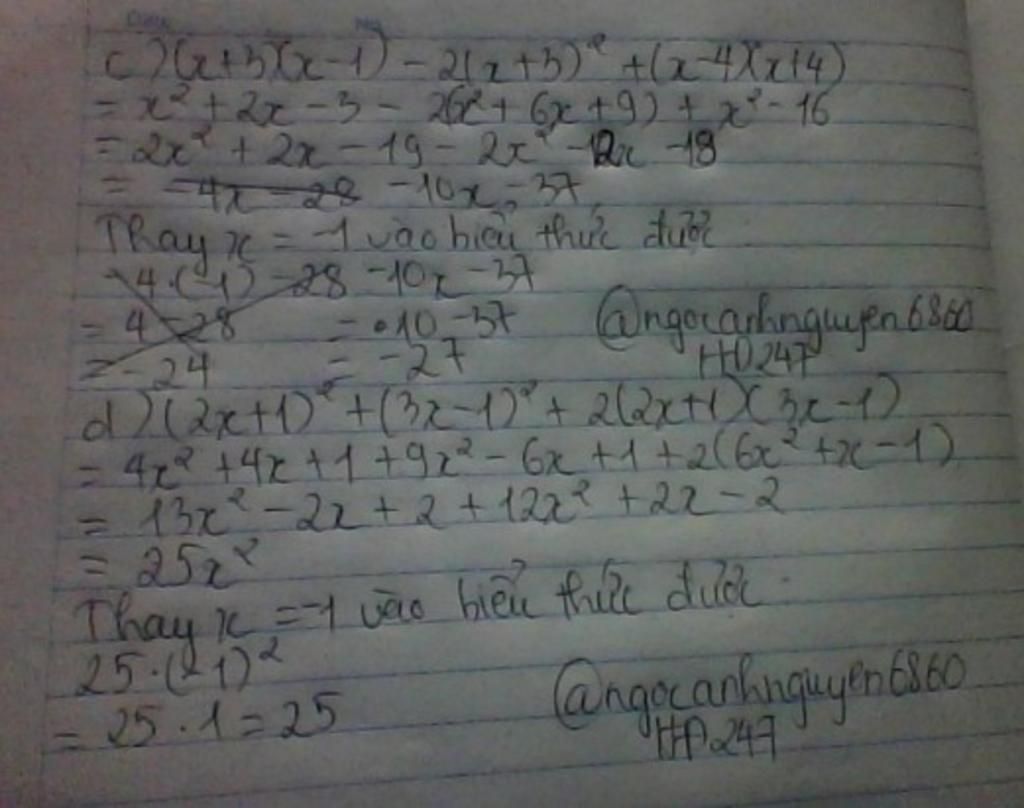 c) (x+3)(x-1) - 2(x+3)² + (x-4)(x+4)
= x² + 2x - 3 - 2(x² + 6x + 9) + x² - 16
= 2x² + 2x - 19 - 2x² - 12x - 18
= -4x - 28 -10x - 37
Thay x = -1 vào biểu thức được
-4.(-1) - 28 -10x - 37
= 4 - 28 = 10 - 37 @ngocanhnguyen6860
= -24 = -27 HD247
d) (2x+1)² + (3x-1)² + 2(2x+1)(3x-1)
= 4x² + 4x + 1 + 9x² - 6x + 1 + 2(6x² + x - 1)
= 13x² - 2x + 2 + 12x² + 2x - 2
= 25x²
Thay x = -1 vào biểu thức được
25.(-1)²
= 25.1 = 25 @ngocanhnguyen6860
HD247